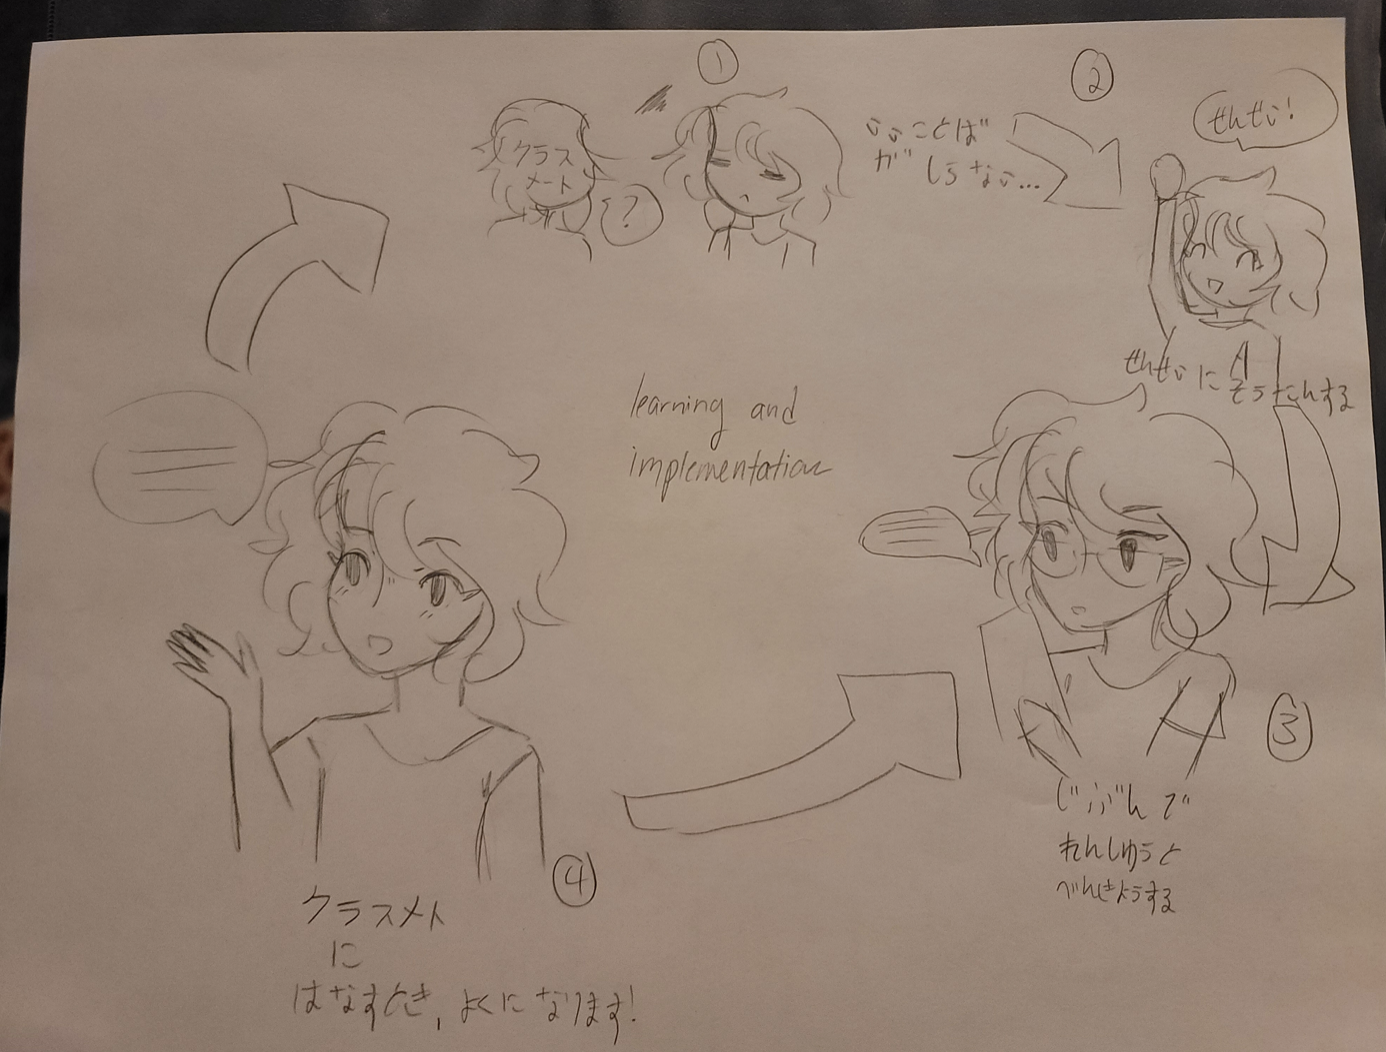 ①
クラス
メート
?
いいことば
が しらない...
②
せんせい!
せんせいに
そうだんする
learning and
implementation
③
じぶんで
れんしゅうと
べんきょうする
④
クラスメト
に
はなすとき, よくになります!